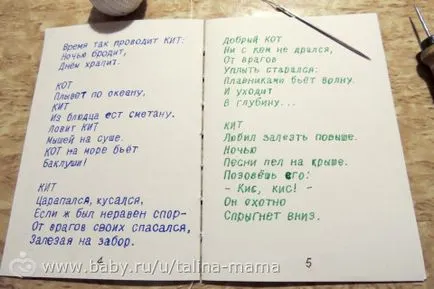 Время так проводит КИТ:
Ночью бродит,
Днём храпит.
КОТ
Плывёт по океану,
КИТ
Из блюдца ест сметану.
Ловит КИТ
Мышей на суше.
КОТ на море бьёт
Баклуши!
КИТ
Царапался, кусался,
Если ж был неравен спор-
От врагов своих спасался,
Залезая на забор.
4
Добрый КОТ
Ни с кем не дрался,
От врагов
Уплыть старался:
Плавниками бьёт волну.
И уходит
В глубину...
КИТ
Любил залезть повыше.
Ночью
Песни пел на крыше.
Позовёшь его:
- Кис, кис! -
Он охотно
Спрыгнет вниз.
5
www.baby.ru/u/talina-mama